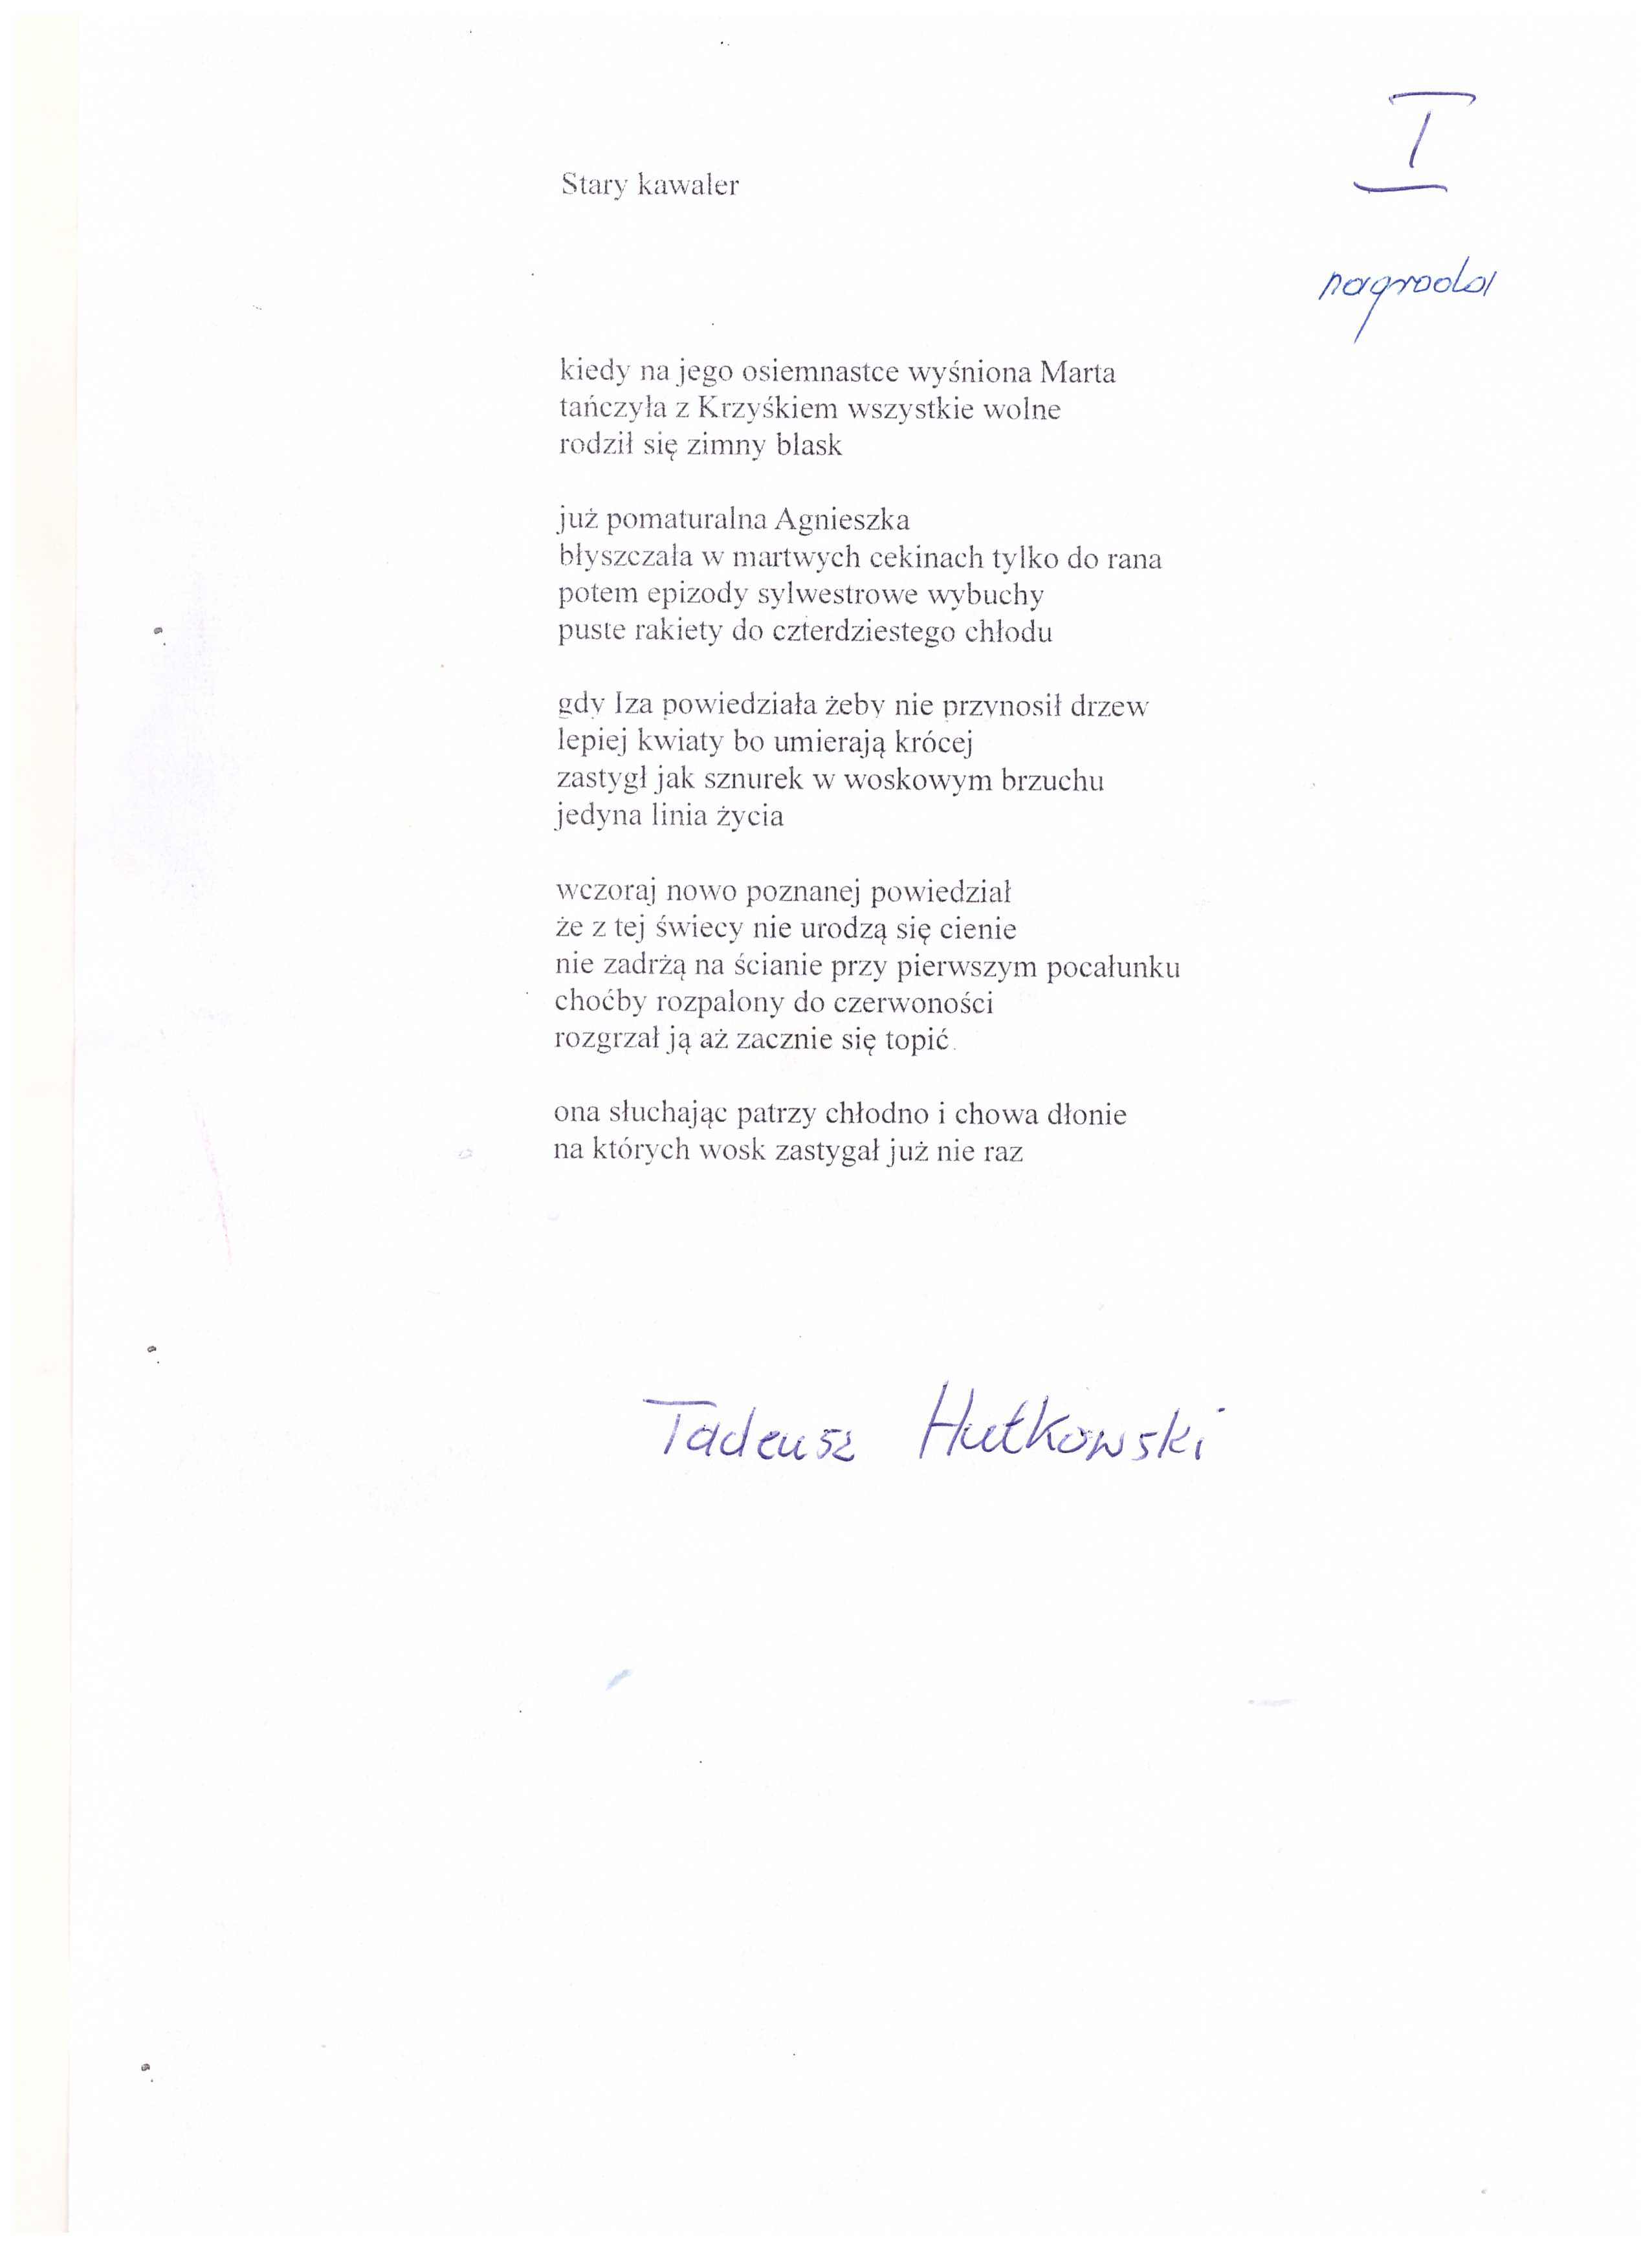 I
Stary kawaler
nagroda
kiedy na jego osiemnastce wyśniona Marta
tańczyła z Krzyśkiem wszystkie wolne
rodził się zimny blask
już pomaturalna Agnieszka
błyszczała w martwych cekinach tylko do rana
potem epizody sylwestrowe wybuchy
puste rakiety do czterdziestego chłodu
gdy Iza powiedziała żeby nie przynosił drzew
lepiej kwiaty bo umierają krócej
zastygł jak sznurek w woskowym brzuchu
jedyna linia życia
wczoraj nowo poznanej powiedział
że z tej świecy nie urodzą się cienie
nie zadrżą na ścianie przy pierwszym pocałunku
choćby rozpalony do czerwoności
rozgrzał ją aż zacznie się topić
ona słuchając patrzy chłodno i chowa dłonie
na których wosk zastygał już nie raz
Tadeusz Hutkowski